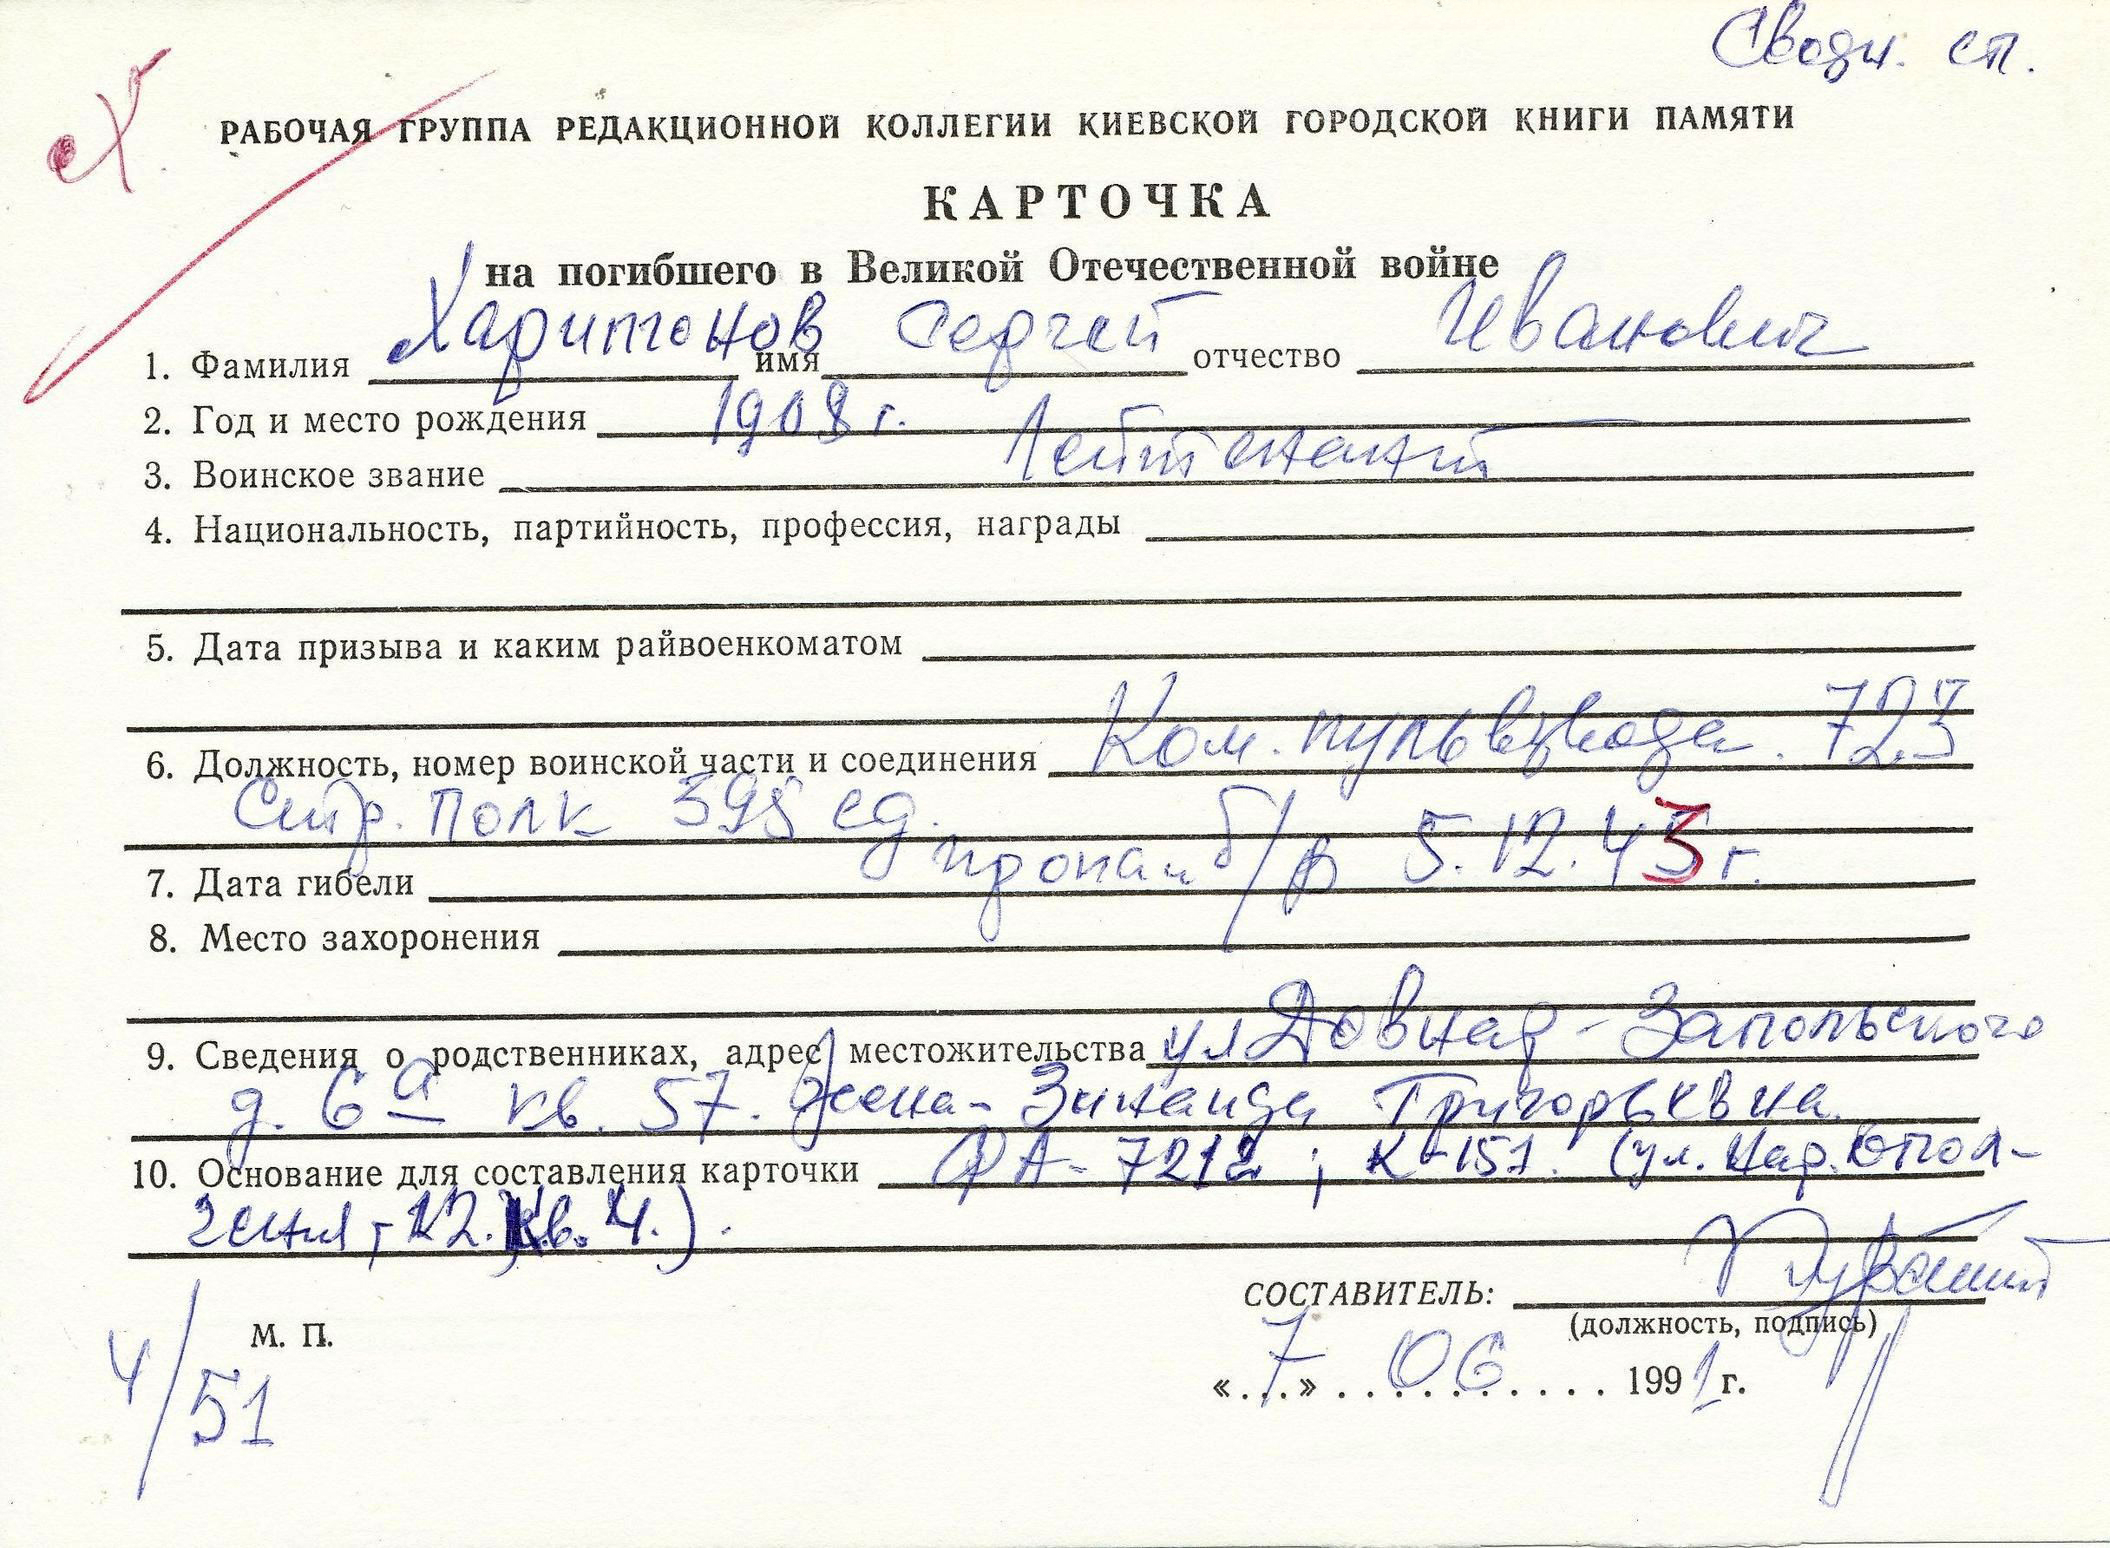 Сводн. сп.
Х
РАБОЧАЯ ГРУППА РЕДАКЦИОННОЙ КОЛЛЕГИИ КИЕВСКОЙ ГОРОДСКОЙ КНИГИ ПАМЯТИ
КАРТОЧКА
на погибшего в Великой Отечественной войне
1. Фамилия Харитонов имя Сергей отчество Иванович
2. Год и место рождения 1908 г.
3. Воинское звание Лейтенант
4. Национальность, партийность, профессия, награды
5. Дата призыва и каким райвоенкоматом
6. Должность, номер воинской части и соединения Ком. пульвзвода. 723
Стр. полк 395 сд.
7. Дата гибели пропал б/в 5.12.43 г.
8. Место захоронения
9. Сведения о родственниках, адрес местожительства ул Довнар-Запольского
д. 6а кв. 57. жена- Зинаида Григорьевна
10. Основание для составления карточки ФА-7212; К-151. (ул. Нар. Опол-
чения, 12. кв. 4.).
СОСТАВИТЕЛЬ:
(должность, подпись)
М. П.
4/51
«7» 06 1991 г.